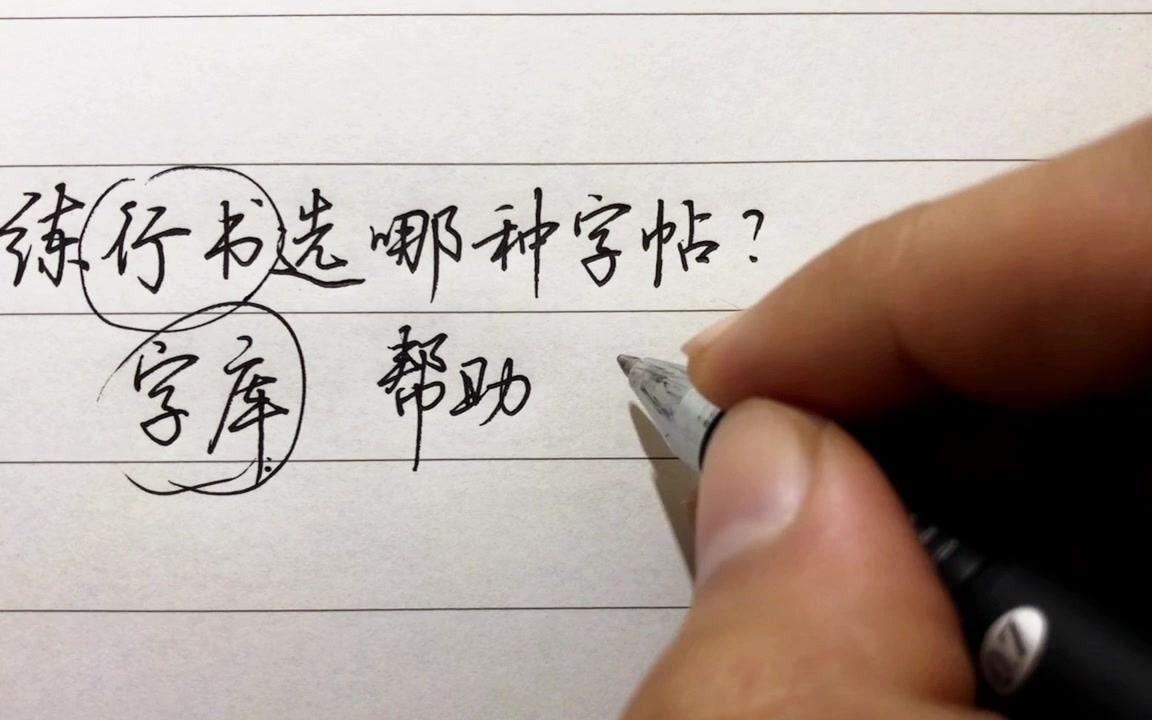 练行书选哪种字帖？
字库 帮助